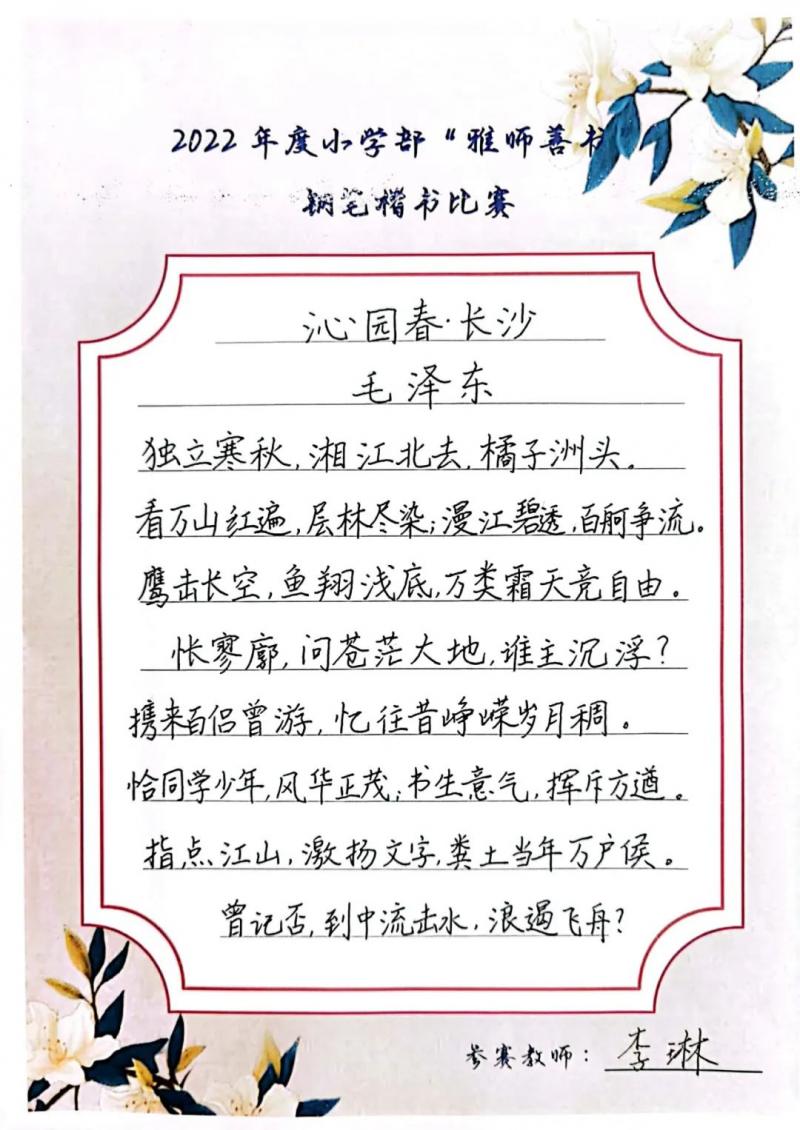 2022年度小学部“雅师善书
钢笔楷书比赛
沁园春·长沙
毛泽东
独立寒秋,湘江北去,橘子洲头。
看万山红遍,层林尽染;漫江碧透,百舸争流。
鹰击长空,鱼翔浅底,万类霜天竞自由。
怅寥廓,问苍茫大地,谁主沉浮?
携来百侣曾游,忆往昔峥嵘岁月稠。
恰同学少年,风华正茂;书生意气,挥斥方遒。
指点江山,激扬文字,粪土当年万户侯。
曾记否,到中流击水,浪遏飞舟?
参赛教师:李琳